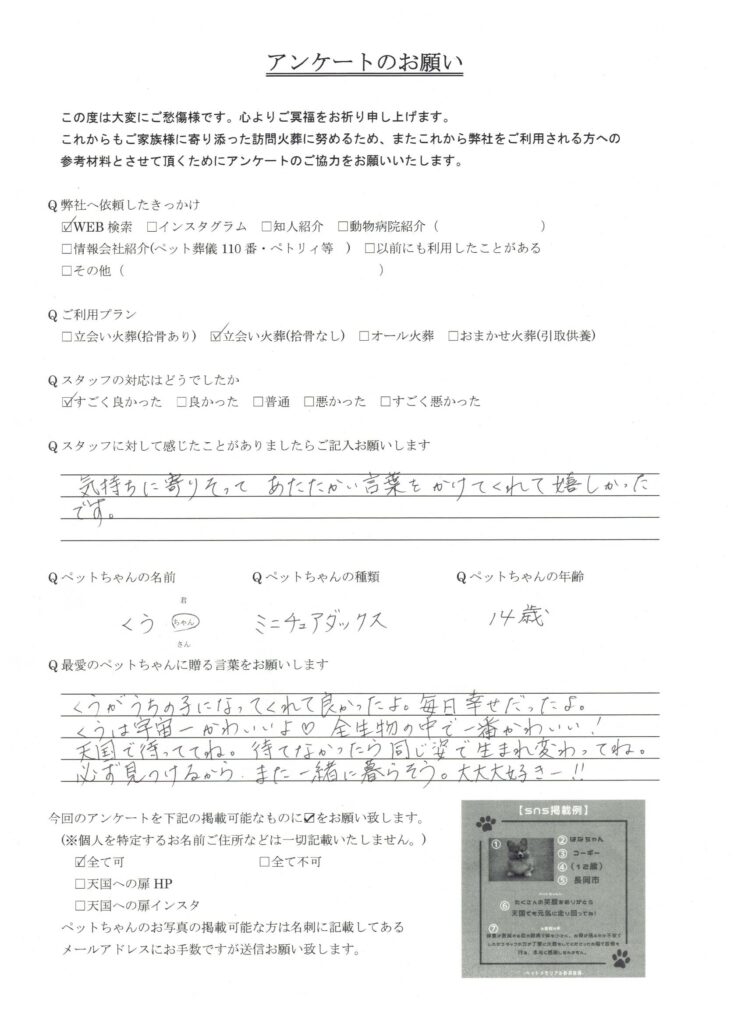 アンケートのお願い
この度は大変にご愁傷様です。心よりご冥福をお祈り申し上げます。
これからもご家族様に寄り添った訪問火葬に努めるため、またこれから弊社をご利用される方への
参考材料とさせて頂くためにアンケートのご協力をお願いいたします。
Q 弊社へ依頼したきっかけ
☑WEB 検索 □インスタグラム □知人紹介 □動物病院紹介（ ）
□情報会社紹介(ペット葬儀 110 番・ペトリィ等 ) □以前にも利用したことがある
□その他（ ）
Q ご利用プラン
□立会い火葬(拾骨あり) ☑立会い火葬(拾骨なし) □オール火葬 □おまかせ火葬(引取供養)
Q スタッフの対応はどうでしたか
☑すごく良かった □良かった □普通 □悪かった □すごく悪かった
Q スタッフに対して感じたことがありましたらご記入お願いします
気持ちに寄りそって あたたかい言葉をかけてくれて嬉しかった
です。
Q ペットちゃんの名前 Q ペットちゃんの種類 Q ペットちゃんの年齢
君
くう ちゃん ミニチュアダックス 14歳
さん
Q 最愛のペットちゃんに贈る言葉をお願いします
くうがうちの子になってくれて良かったよ。毎日幸せだったよ。
くうは宇宙一かわいいよ♡ 全生物の中で一番かわいい！
天国で待っててね。待てなかったら同じ姿で生まれ変わってね。
必ず見つけるから、また一緒に暮らそう。大大大好きー!!
今回のアンケートを下記の掲載可能なものに☑をお願い致します。
(※個人を特定するお名前ご住所などは一切記載いたしません。)
☑全て可 □全て不可
□天国への扉 HP
□天国への扉インスタ
ペットちゃんのお写真の掲載可能な方は名刺に記載してある
メールアドレスにお手数ですが送信お願い致します。
【sns掲載例】
① ② はなちゃん
③ コーギー
④ （12歳）
⑤ 長岡市
⑥ たくさんの笑顔をありがとう
天国でも元気に走り回ってね！
⑦